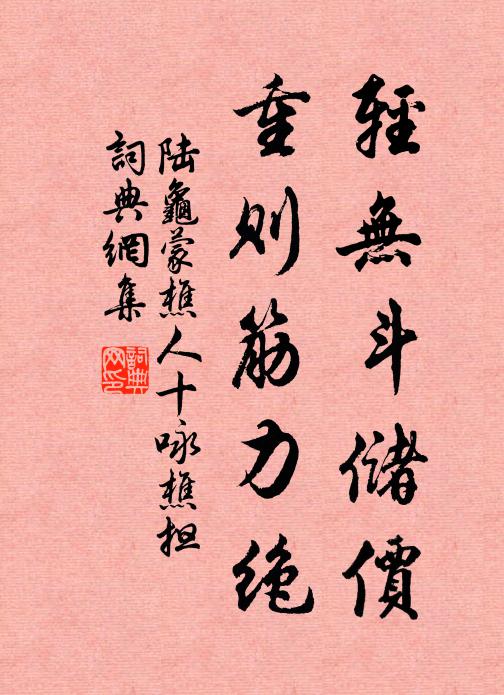 輕無斗儲價
重則筋力絶
陆龜蒙樵人十咏樵担
詞典網集
詞典网印